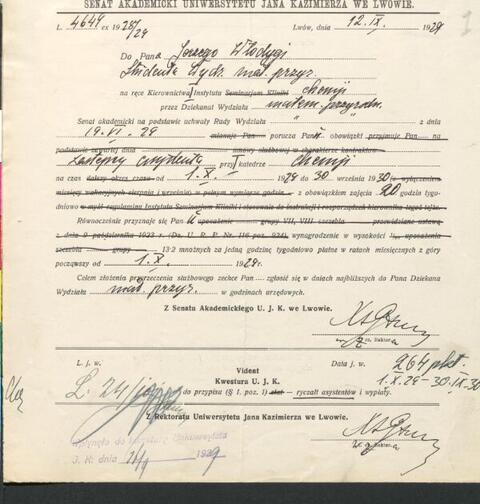 SENAT AKADEMICKI UNIWERSYTETU JANA KAZIMIERZA WE LWOWIE.
L. 4649 ex 1928/29 Lwów, dnia 12.IX. 1929
Do Pana Jerzego Włodygi
Studenta Wydz. mat. przyr.
na ręce Kierownictwa I Instytutu Seminarjum Kliniki chemji
przez Dziekanat Wydziału matem. przyrodn.
Senat akademicki na podstawie uchwały Rady Wydziału z dnia
19.VI.29 mianuje Pan porucza Panu obowiązki przyjmuje Pan
podstawie zawartej dnia umowy służbowej w charakterze kontraktow.
zastępcy asystenta przy I katedrze chemji
na czas dalszy okres czasu od 1.X. 1929 do 30 września 1930 (z wyłączeniem
miesięcy wakacyjnych sierpnia i września) w pełnym wymiarze godzin z obowiązkiem zajęcia 20 godzin tygo-
dniowo w myśl regulaminu Instytutu Seminarjum Kliniki i stosownie do instrukcji i rozporządzeń kierownika tegoż
Równocześnie przyznaje się Panu uposażenie grupy VII, VIII szczebla przewidziane ustawą
z dnia 9 października 1923 r. (Dz. U. R. P. Nr. 116 poz. 924), wynagrodzenie w wysokości uposażenia
szczebla grupy 13·2 mnożnych za jedną godzinę tygodniowo płatne w ratach miesięcznych z góry
począwszy od 1.X. 1929 r.
Celem złożenia przyrzeczenia służbowego zechce Pan zgłosić się w dniach najbliższych do Pana Dziekana
Wydziału mat. przyr. w godzinach urzędowych.
Z Senatu Akademickiego U. J. K. we Lwowie.
Rektor
L. j. w. Data j. w.
264 pkt.
1.X.29 – 30.IX.30
Vident
Kwestura U. J. K.
L. 24/ do przypisu (§ 1. poz. 1) ryczałt asystentów i wypłaty.
Z Rektoratu Uniwersytetu Jana Kazimierza we Lwowie.
Wpłynęło do Kwestury Uniwersytetu
J. K. dnia 1929
Rektor